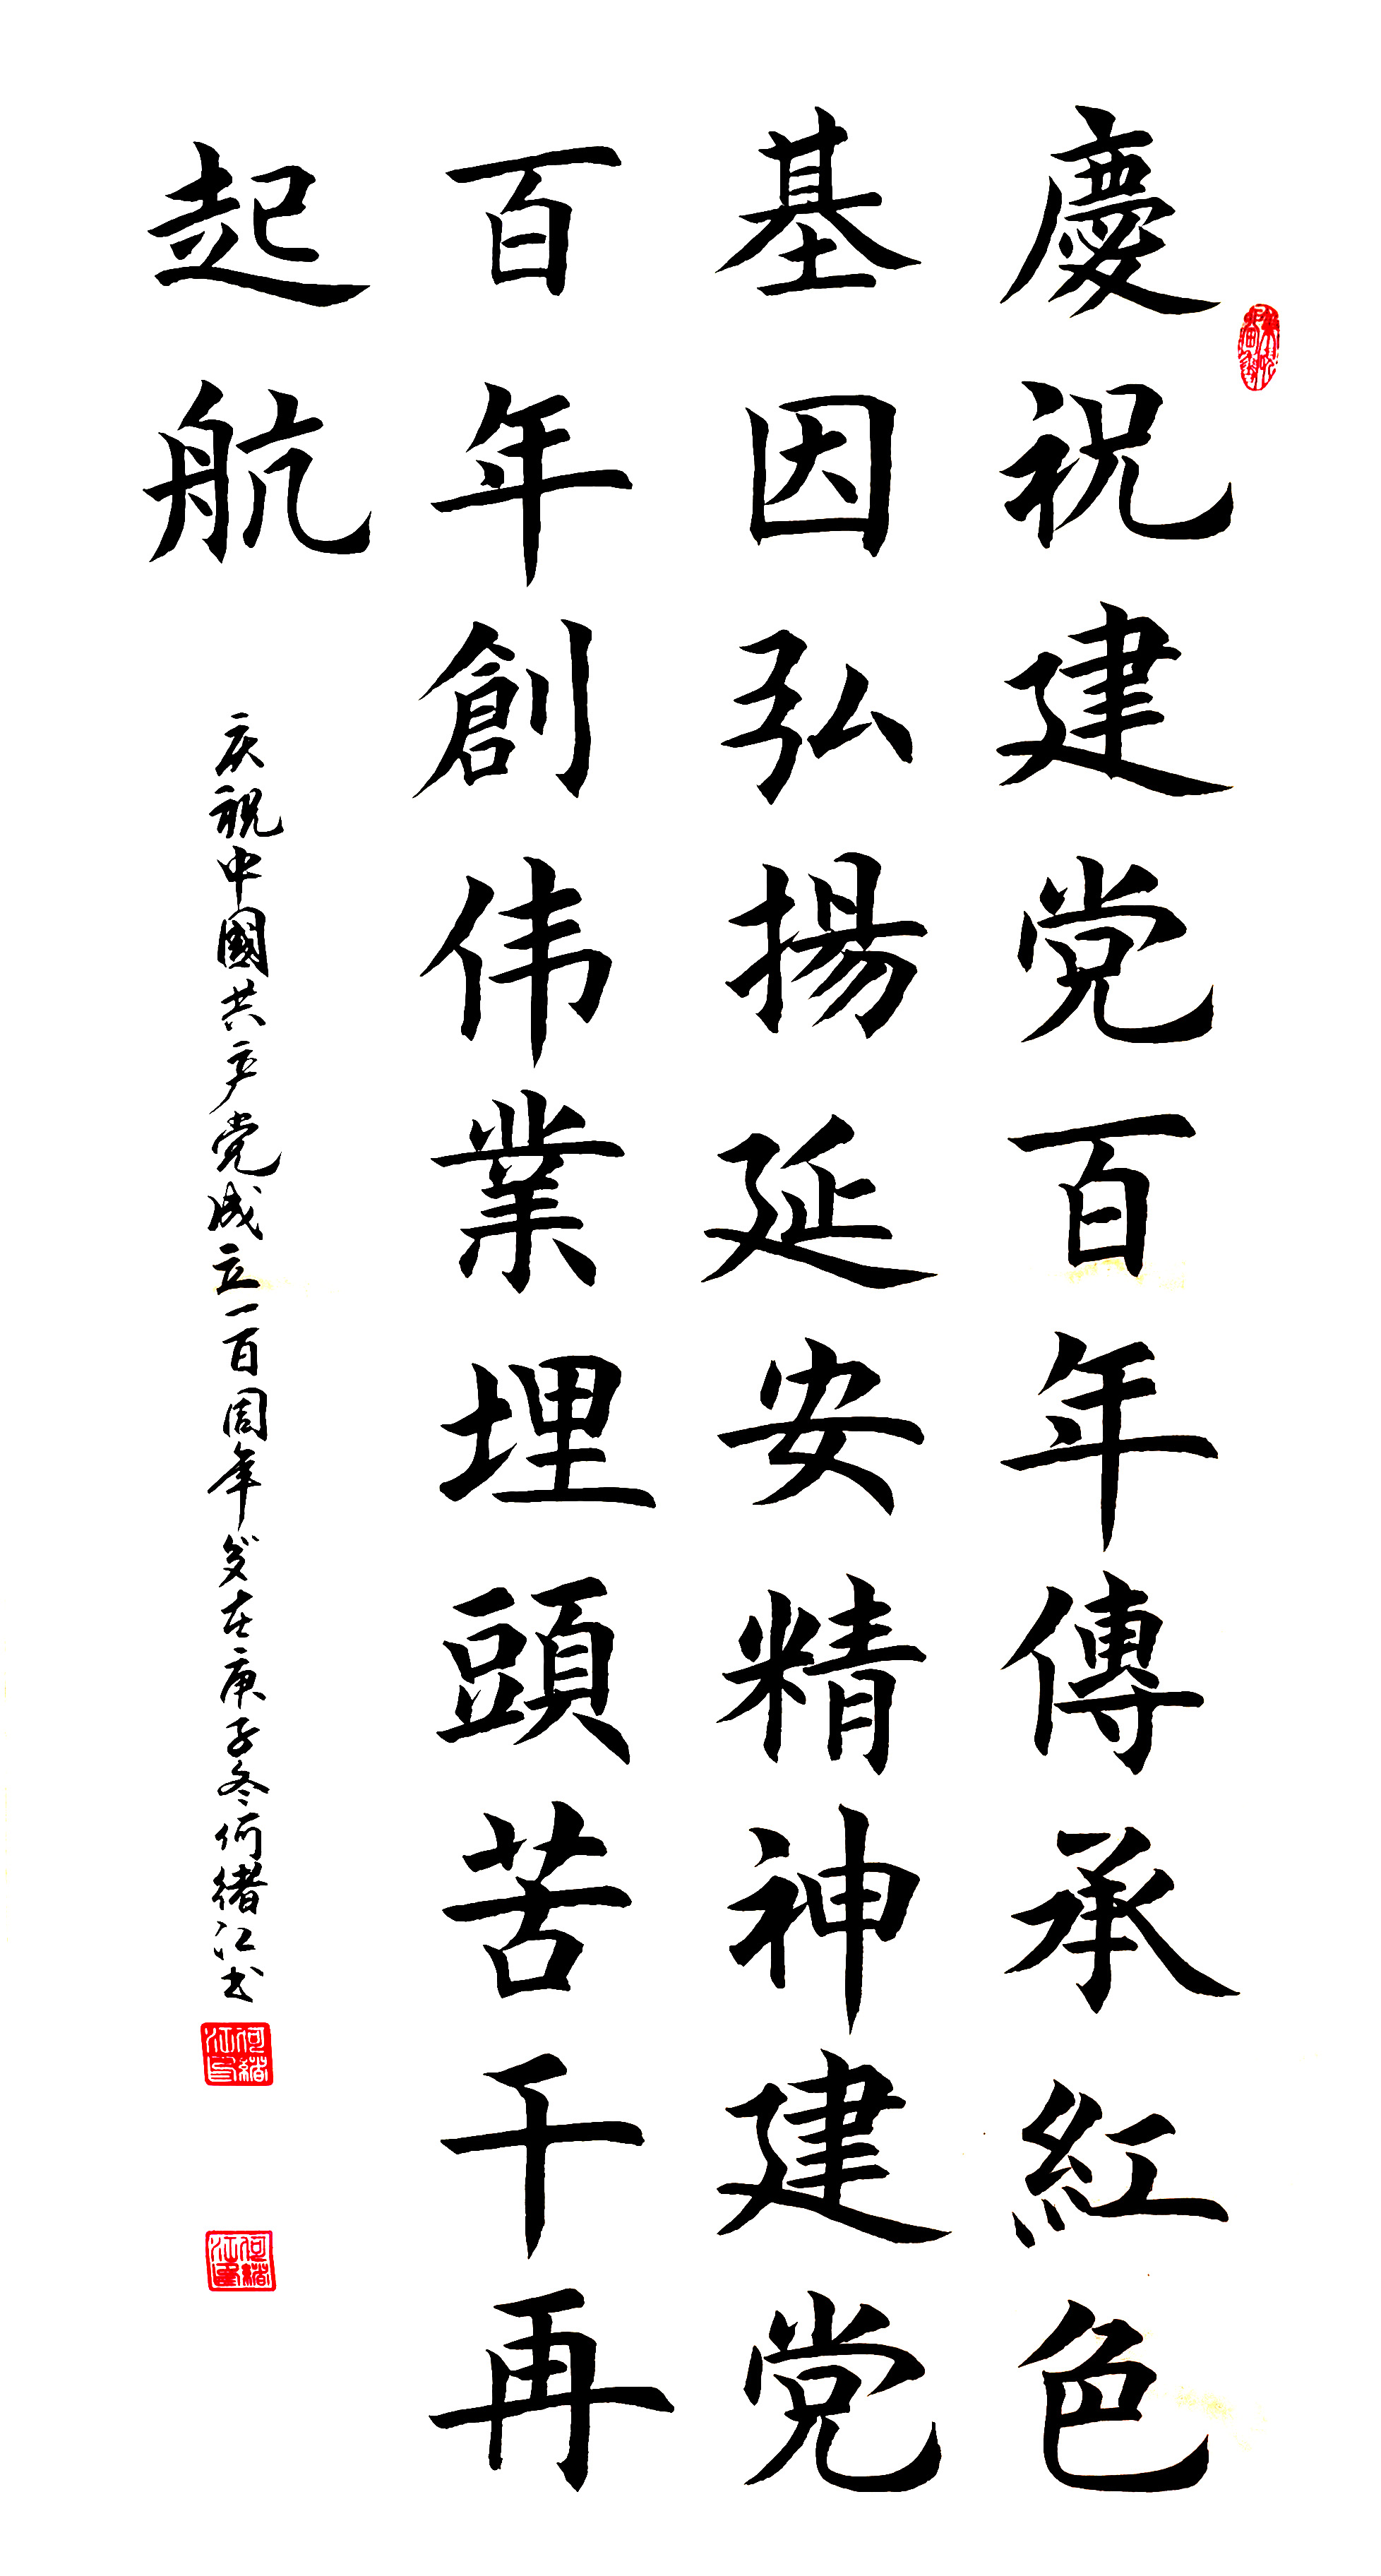 慶祝建党百年傳承紅色
基因弘揚延安精神建党
百年創伟業埋頭苦干再
起航
庆祝中國共产党成立一百周年岁在庚子冬何绪江书
何绪江印